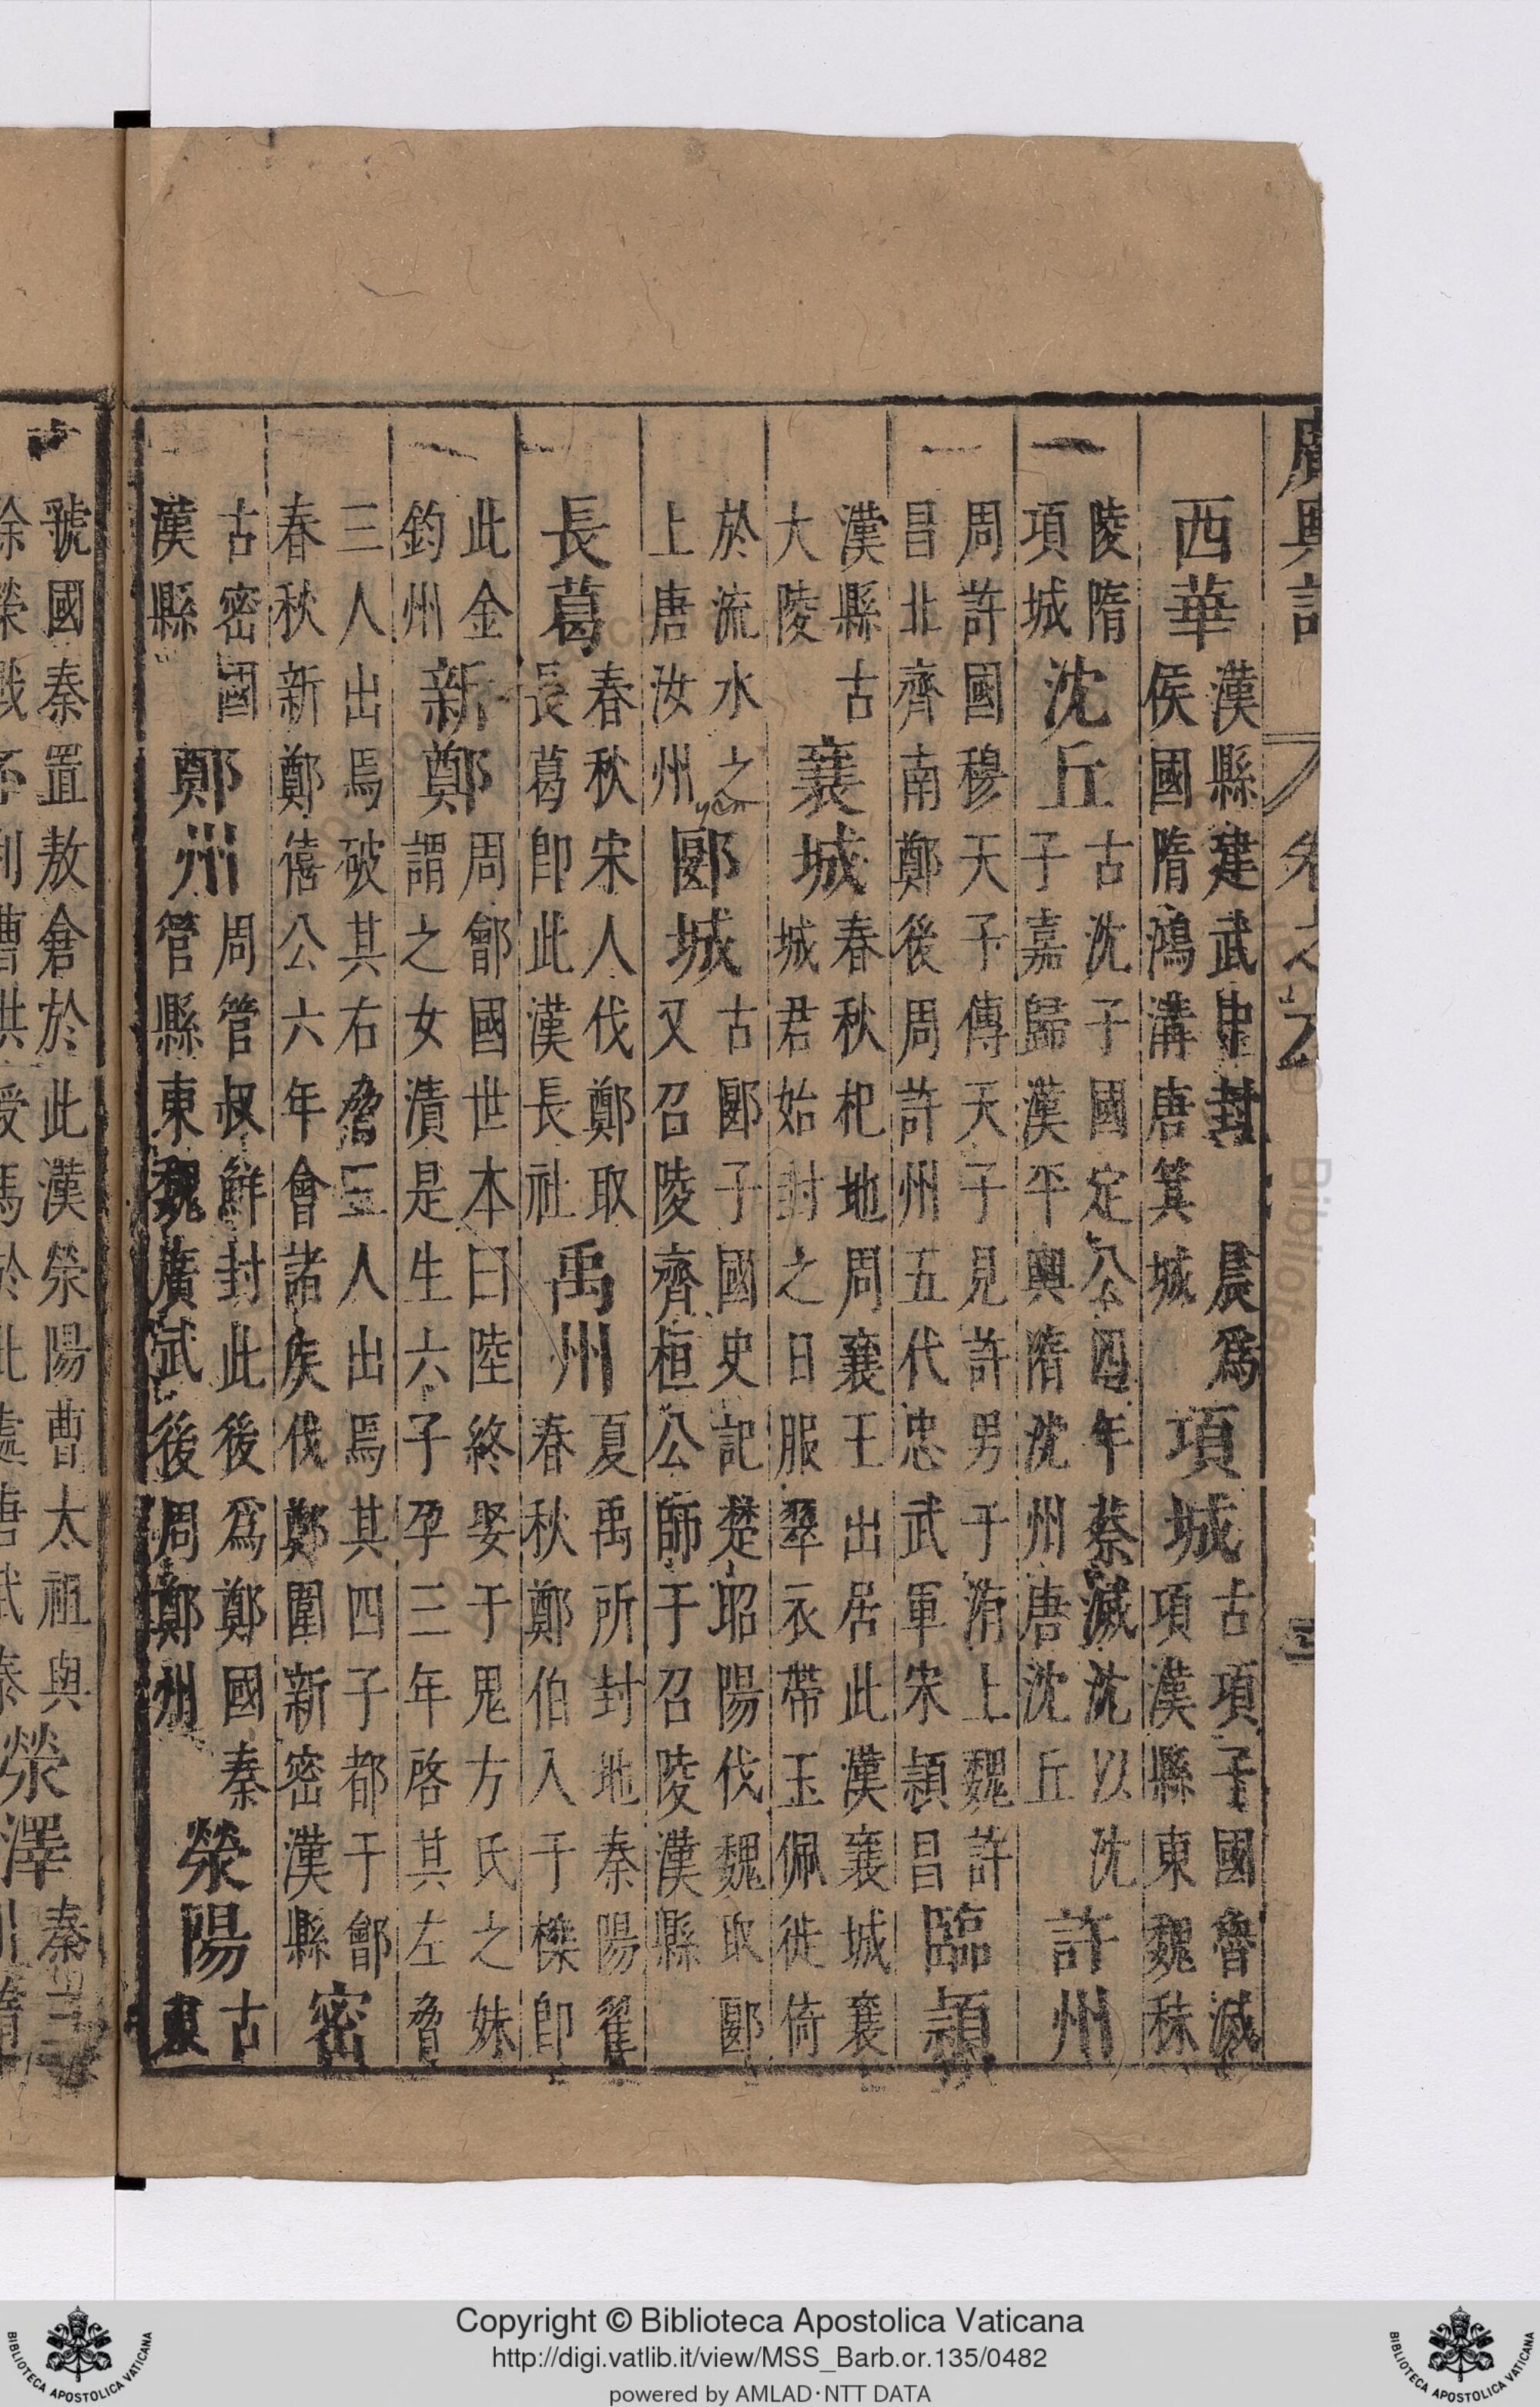 廣輿記 卷之六
西華漢縣建武中封晨爲侯國隋鴻溝唐箕城項城古項子國魯滅項漢縣東魏秣
陵隋項城沈丘古沈子國定公四年蔡滅沈以沈子嘉歸漢平輿隋沈州唐沈丘許州
周許國穆天子傳天子見許男于洧上魏許昌北齊南鄭後周許州五代忠武軍宋潁昌臨潁
漢縣古大陵襄城春秋杞地周襄王出居此漢襄城襄城君始封之日服翠衣帶玉佩徙倚
於流水之上唐汝州郾城古郾子國史記楚昭陽伐魏取郾又召陵齊桓公師于召陵漢縣
yen
長葛春秋宋人伐鄭取長葛卽此漢長社禹州夏禹所封地秦陽翟春秋鄭伯入于櫟卽
此金鈞州新鄭周鄶國世本曰陸終娶于鬼方氏之妹謂之女潰是生六子孕三年啓其左脅
三人出焉破其右脅三人出焉其四子都于鄶春秋新鄭僖公六年會諸侯伐鄭圍新密漢縣密
古密國漢縣鄭州周管叔鮮封此後爲鄭國秦管縣東魏廣武後周鄭州滎陽古東
虢國秦置敖倉於此漢滎陽曹太祖與
滎澤秦三
Copyright © Biblioteca Apostolica Vaticana
http://digi.vatlib.it/view/MSS_Barb.or.135/0482
powered by AMLAD·NTT DATA
BIBLIOTECA APOSTOLICA VATICANA
BIBLIOTECA APOSTOLICA VATICANA